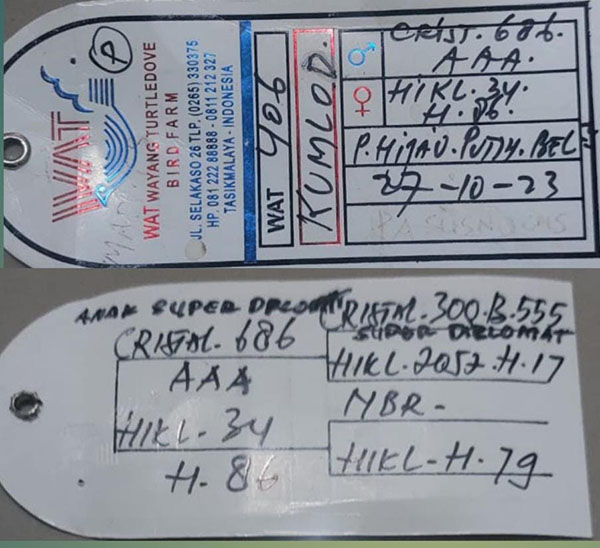 WAT
P
WAT WAYANG TURTLEDOVE
BIRD FARM
JL. SELAKASO 26 TLP. (0265) 330375
HP. 081 222 86888 - 0811 212 327
TASIKMALAYA - INDONESIA
WAT 406
KUMLOD.
♂ CRIST. 686.
AAA.
♀ HIKL. 34.
H. 86.
P. HIJAU. PUTIH. BEL
27-10-23
ANAK SUPER DPLOMAT
CRISTAL. 686
AAA
HIKL. 34
H. 86
CRISTAL. 300.B.555
SUPER DIPLOMAT
HIKL. 2052. H. 17
MBR -
HIKL - H. 79